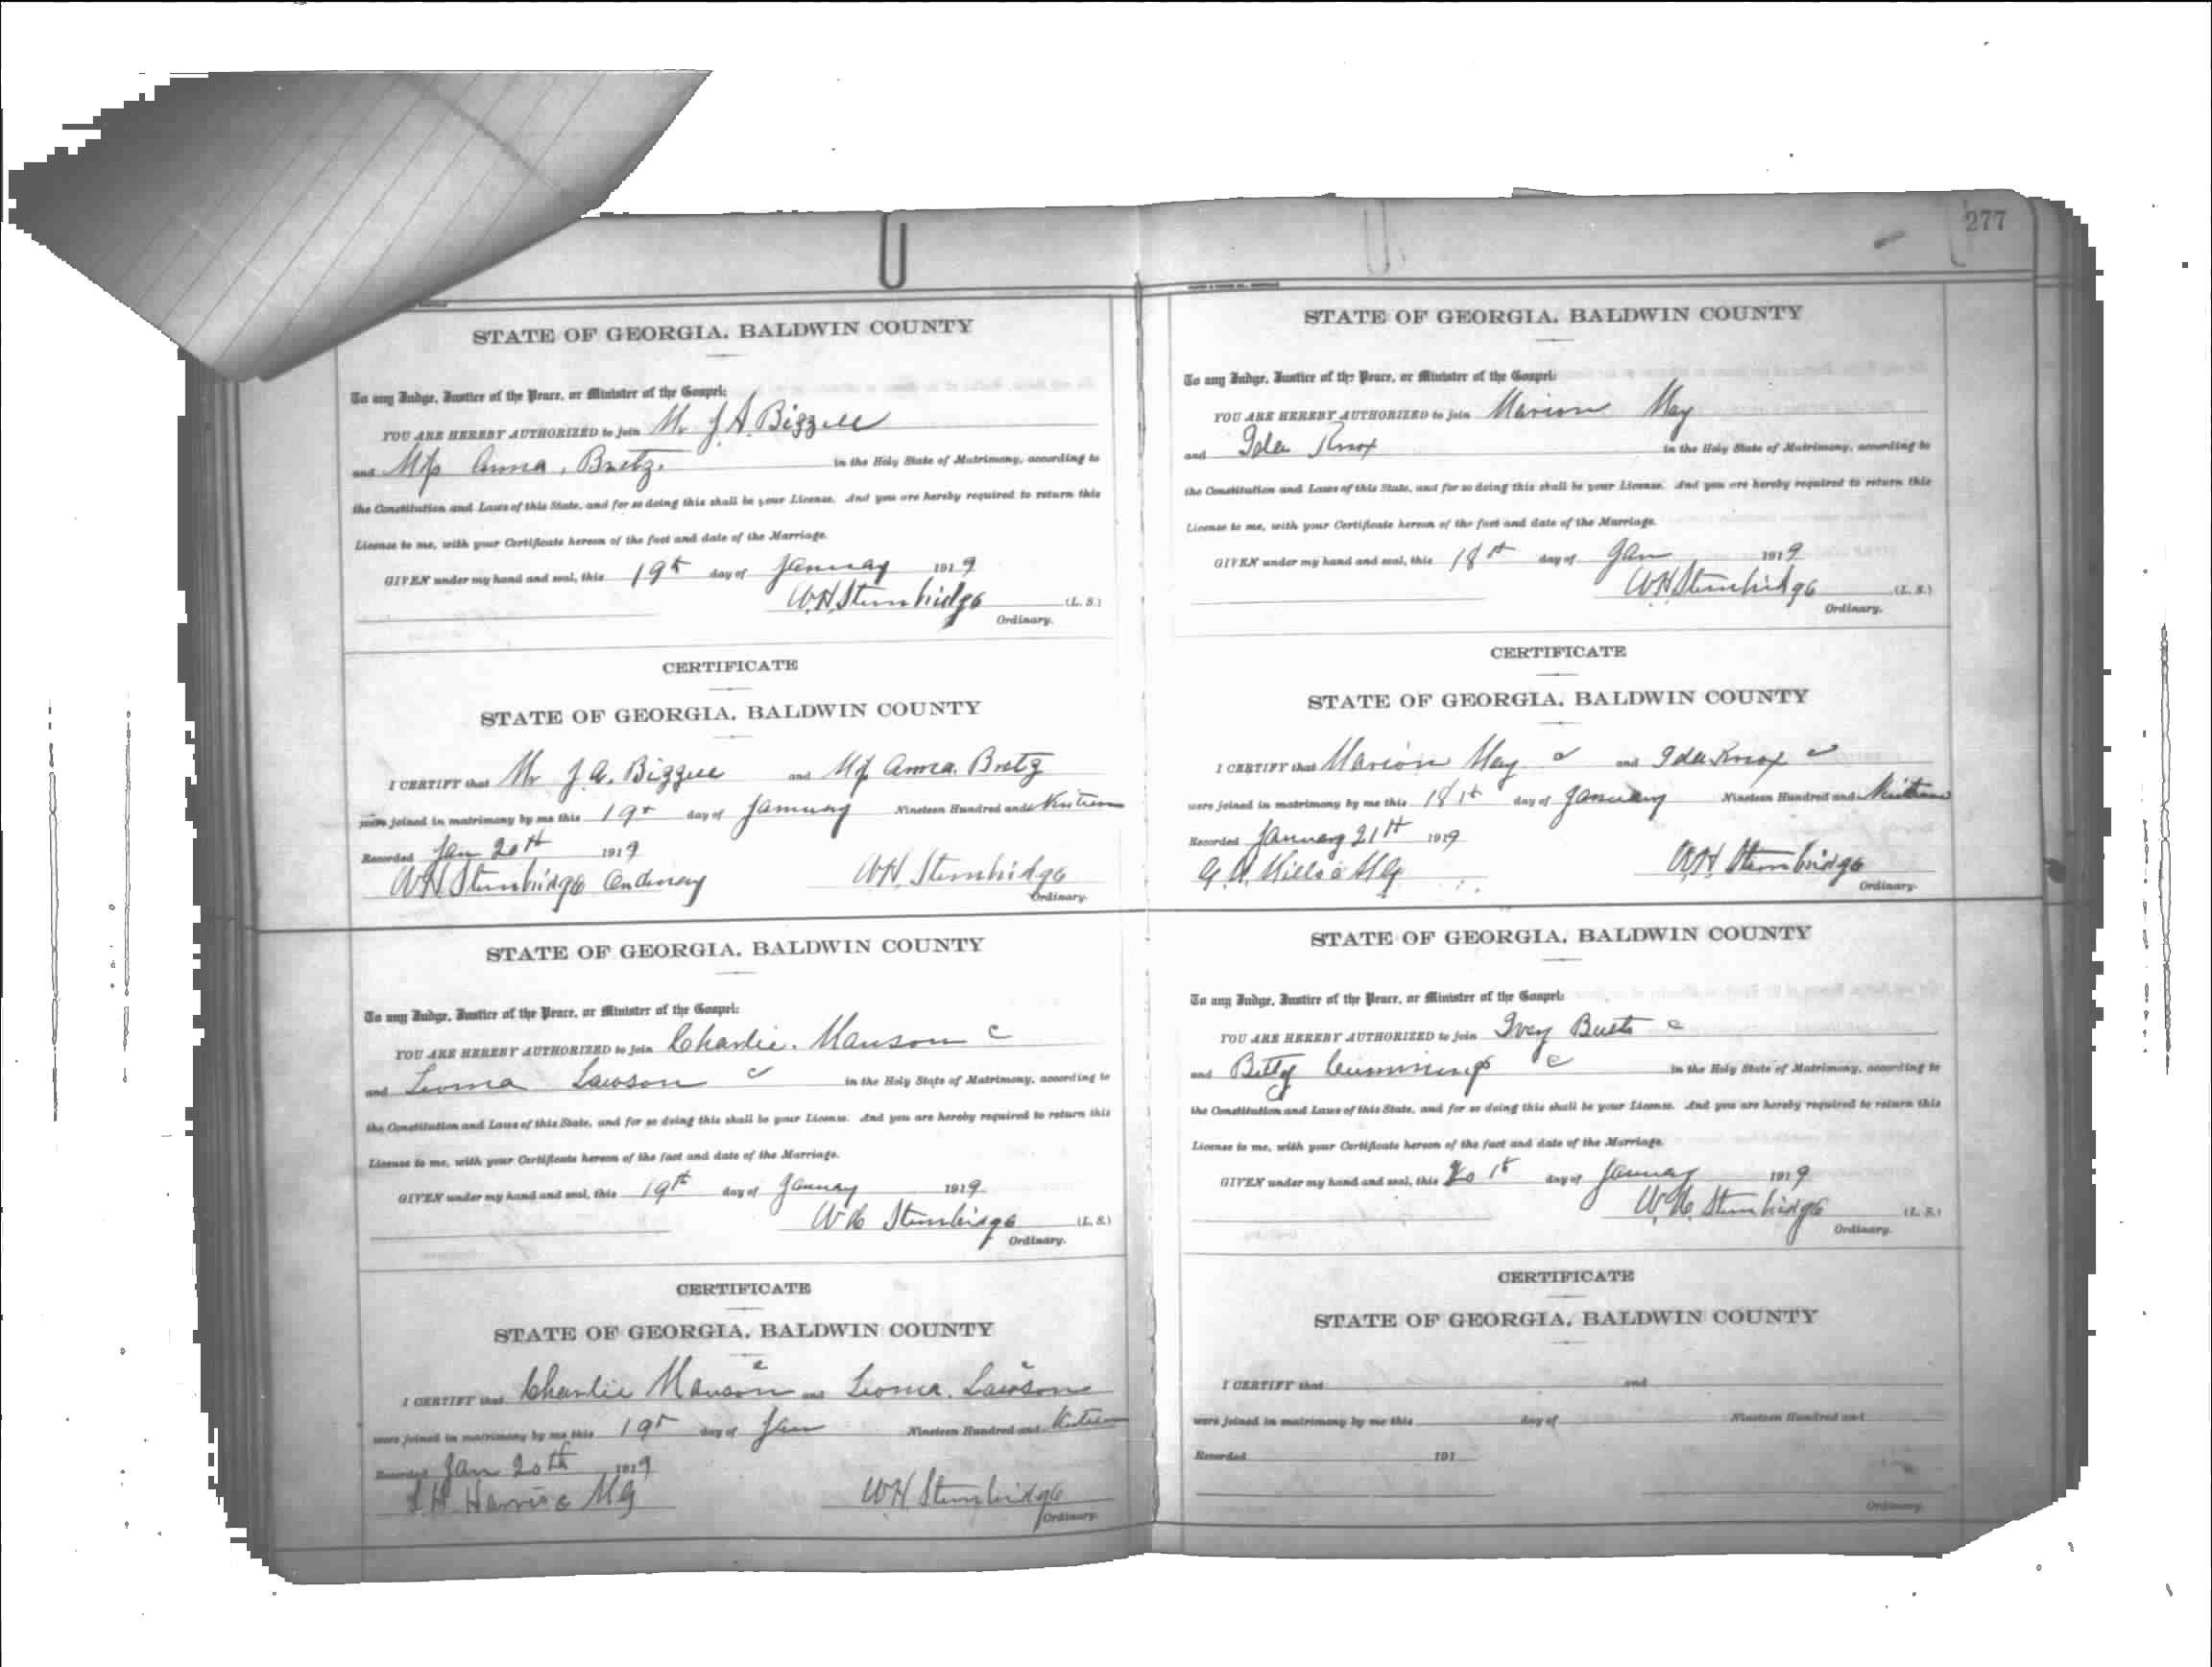 277
STATE OF GEORGIA, BALDWIN COUNTY
To any Judge, Justice of the Peace, or Minister of the Gospel:
YOU ARE HEREBY AUTHORIZED to join Mr J. A. Bizzell
and Miss Anna Bretz in the Holy State of Matrimony, according to
the Constitution and Laws of this State, and for so doing this shall be your License. And you are hereby required to return this
License to me, with your Certificate hereon of the fact and date of the Marriage.
GIVEN under my hand and seal, this 19th day of January 1919
W. H. Stembridge (L. S.)
Ordinary.
CERTIFICATE
STATE OF GEORGIA, BALDWIN COUNTY
I CERTIFY that Mr J. A. Bizzell and Miss Anna Bretz
were joined in matrimony by me this 19th day of January Nineteen Hundred and Nineteen
Recorded Jan 20th 1919
W H Stembridge Ordinary W. H. Stembridge
Ordinary.
STATE OF GEORGIA, BALDWIN COUNTY
To any Judge, Justice of the Peace, or Minister of the Gospel:
YOU ARE HEREBY AUTHORIZED to join Charlie Manson c
and Leoma Lawson c in the Holy State of Matrimony, according to
the Constitution and Laws of this State, and for so doing this shall be your License. And you are hereby required to return this
License to me, with your Certificate hereon of the fact and date of the Marriage.
GIVEN under my hand and seal, this 19th day of January 1919
W H Stembridge (L. S.)
Ordinary.
CERTIFICATE
STATE OF GEORGIA, BALDWIN COUNTY
I CERTIFY that Charlie Manson c and Leoma Lawson c
were joined in matrimony by me this 19th day of Jan Nineteen Hundred and Nineteen
Recorded Jan 20th 1919
Harris c MG W H Stembridge
Ordinary.
STATE OF GEORGIA, BALDWIN COUNTY
To any Judge, Justice of the Peace, or Minister of the Gospel:
YOU ARE HEREBY AUTHORIZED to join Marion May
and Ida Knox in the Holy State of Matrimony, according to
the Constitution and Laws of this State, and for so doing this shall be your License. And you are hereby required to return this
License to me, with your Certificate hereon of the fact and date of the Marriage.
GIVEN under my hand and seal, this 18th day of Jan 1919
W H Stembridge (L. S.)
Ordinary.
CERTIFICATE
STATE OF GEORGIA, BALDWIN COUNTY
I CERTIFY that Marion May c and Ida Knox c
were joined in matrimony by me this 18th day of January Nineteen Hundred and Nineteen
Recorded January 21st 1919
MG W. H. Stembridge
Ordinary.
STATE OF GEORGIA, BALDWIN COUNTY
To any Judge, Justice of the Peace, or Minister of the Gospel:
YOU ARE HEREBY AUTHORIZED to join Ivey Butts c
and Betty Cummings c in the Holy State of Matrimony, according to
the Constitution and Laws of this State, and for so doing this shall be your License. And you are hereby required to return this
License to me, with your Certificate hereon of the fact and date of the Marriage.
GIVEN under my hand and seal, this 20th day of January 1919
W. H. Stembridge (L. S.)
Ordinary.
CERTIFICATE
STATE OF GEORGIA, BALDWIN COUNTY
I CERTIFY that and
were joined in matrimony by me this day of Nineteen Hundred and
Recorded 191
Ordinary.